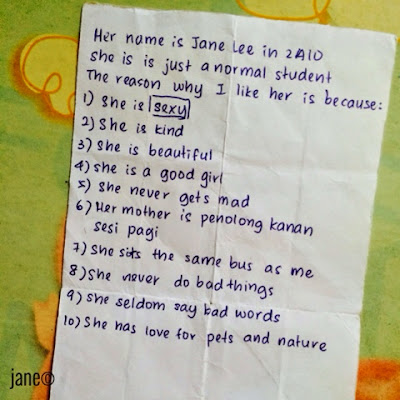 Her name is Jane Lee in 2A10
she is is just a normal student
The reason why I like her is because:
1) She is sexy
2) She is kind
3) She is beautiful
4) She is a good girl
5) She never gets mad
6) Her mother is penolong kanan
sesi pagi
7) She sits the same bus as me
8) She never do bad things
9) She seldom say bad words
10) She has love for pets and nature
jane©